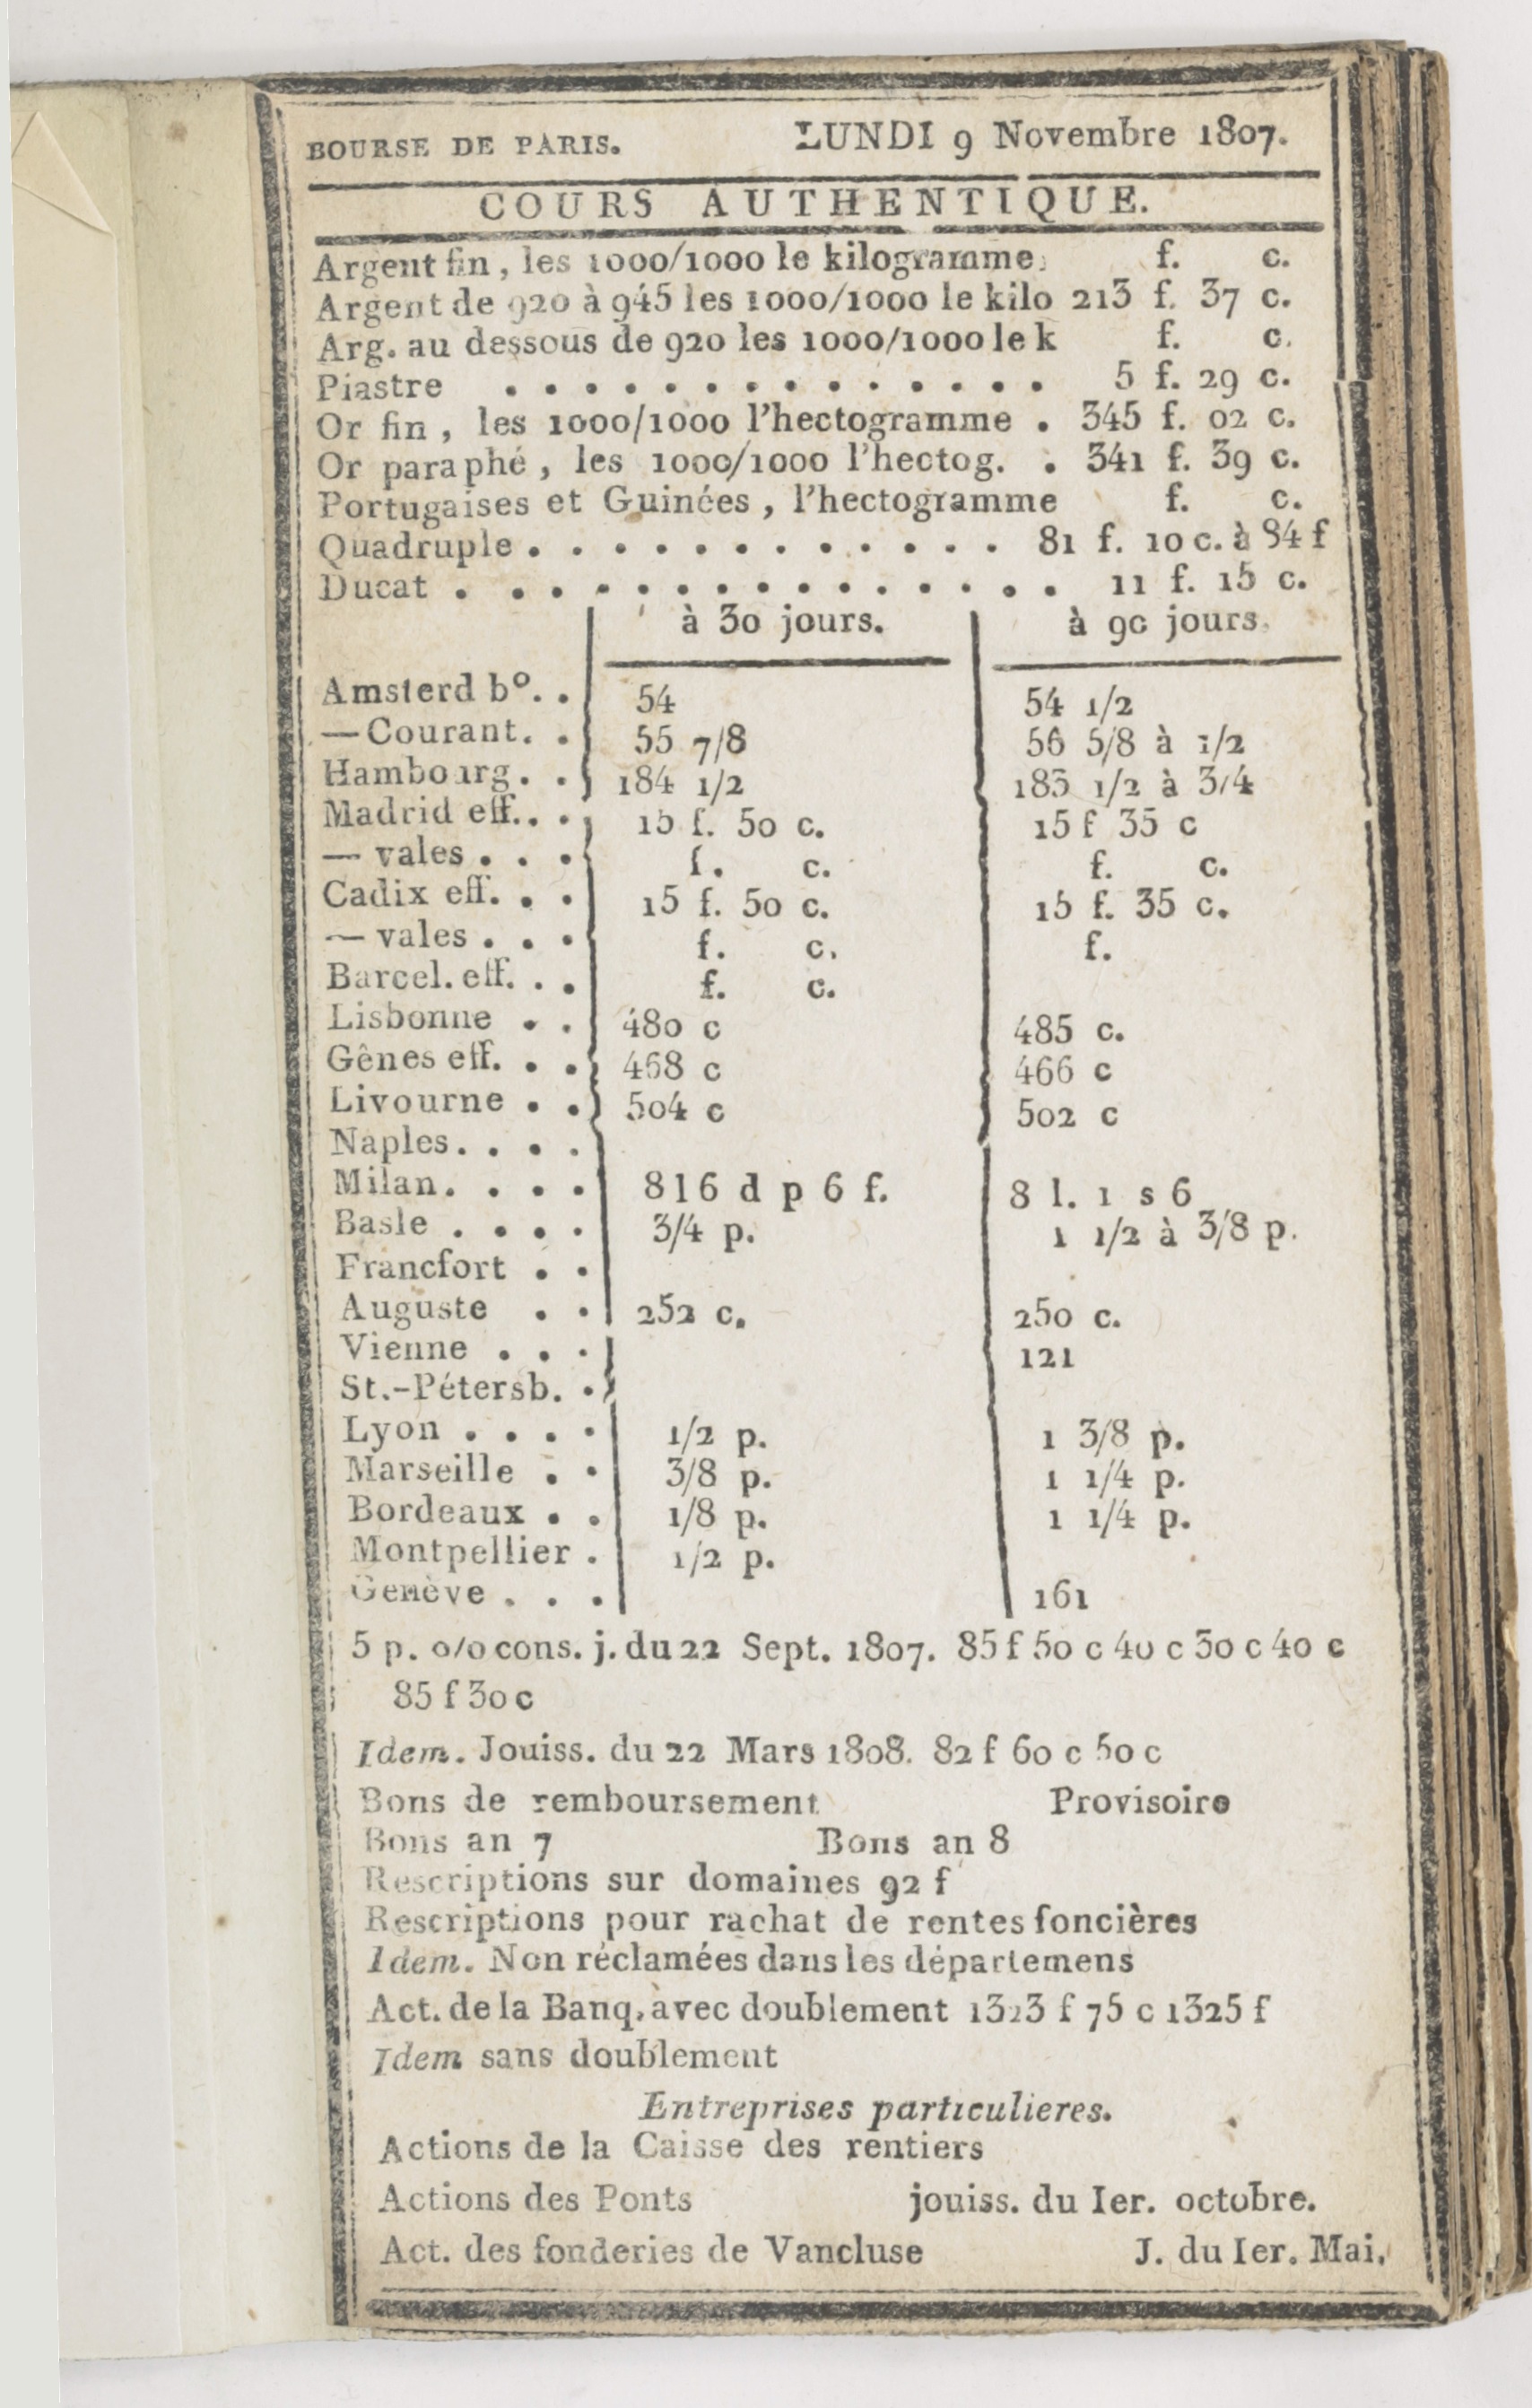 BOURSE DE PARIS. LUNDI 9 Novembre 1807.
COURS AUTHENTIQUE.
Argent fin, les 1000/1000 le kilogramme, f. c.
Argent de 920 à 945 les 1000/1000 le kilo 213 f. 37 c.
Arg. au dessous de 920 les 1000/1000 le k f. c.
Piastre . . . . . . . . . . . . . . 5 f. 29 c.
Or fin, les 1000/1000 l'hectogramme . 345 f. 02 c.
Or paraphé, les 1000/1000 l'hectog. . 341 f. 39 c.
Portugaises et Guinées, l'hectogramme f. c.
Quadruple . . . . . . . . . . . . 81 f. 10 c. à 84 f
Ducat . . . . . . . . . . . . . . 11 f. 15 c.
à 30 jours. à 90 jours.
Amsterd b°. . 54 54 1/2
—Courant. . 55 7/8 56 5/8 à 1/2
Hambourg. . 184 1/2 183 1/2 à 3/4
Madrid eff.. . 15 f. 50 c. 15 f 35 c
— vales . . . f. c. f. c.
Cadix eff. . . 15 f. 50 c. 15 f. 35 c.
— vales . . . f. c. f.
Barcel. eff. . . f. c.
Lisbonne . . 480 c 485 c.
Gênes eff. . . 468 c 466 c
Livourne . . 504 c 502 c
Naples. . . .
Milan. . . . 816 d p 6 f. 8 l. 1 s 6
Basle . . . . 3/4 p. 1 1/2 à 3/8 p.
Francfort . .
Auguste . . 252 c. 250 c.
Vienne . . . 121
St.-Pétersb. .
Lyon . . . . 1/2 p. 1 3/8 p.
Marseille . . 3/8 p. 1 1/4 p.
Bordeaux . . 1/8 p. 1 1/4 p.
Montpellier . 1/2 p.
Genève . . . 161
5 p. o/o cons. j. du 22 Sept. 1807. 85 f 50 c 40 c 30 c 40 c
85 f 30 c
Idem. Jouiss. du 22 Mars 1808. 82 f 60 c 50 c
Bons de remboursement Provisoire
Bons an 7 Bons an 8
Rescriptions sur domaines 92 f
Rescriptions pour rachat de rentes foncières
Idem. Non réclamées dans les départemens
Act. de la Banq. avec doublement 1323 f 75 c 1325 f
Idem sans doublement
Entreprises particulieres.
Actions de la Caisse des rentiers
Actions des Ponts jouiss. du Ier. octobre.
Act. des fonderies de Vancluse J. du Ier. Mai.